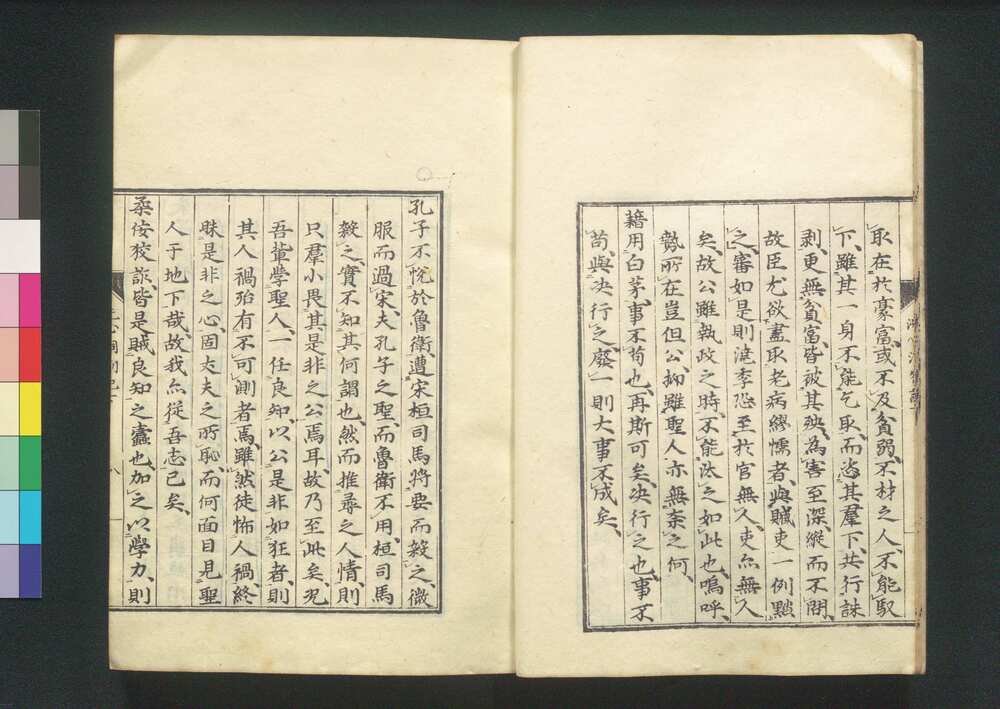 取在於豪富、或不及貧弱、不材之人、不能馭
下、雖其一身不能乞取、而恣其羣下、共行誅
剥、更無貧富、皆被其殃、為害至深、縱而不問、
故臣尤欲盡取老病繆懦者、與贓吏一例黜
之、審如是則滤李恐至於官無人、吏亦無人
矣、故公雖執政之時、不能汰之如此也、嗚呼、
勢所在豈但公、抑雖聖人亦無奈之何、
藉用白茅、事不苟也、再斯可矣、决行之也、事不
苟、與决行之廢一、則大事不成矣、
孔子不悅於魯衛、遭宋桓司馬將要而殺之、微
服而過宋、夫孔子之聖、而魯衛不用、桓司馬
殺之、實不知其何謂也、然而推尋之人情、則
只羣小畏其是非之公焉耳、故乃至此矣、况
吾輩學聖人、一任良知以公是非如狂者、則
其人禍殆有不可測者焉、雖然徒怖人禍、終
昧是非之心、固丈夫之所恥、而何面目見聖
人于地下哉、故我亦從吾志已矣、
柔佞狡詐、皆是賊良知之蠹也、加之以學力、則